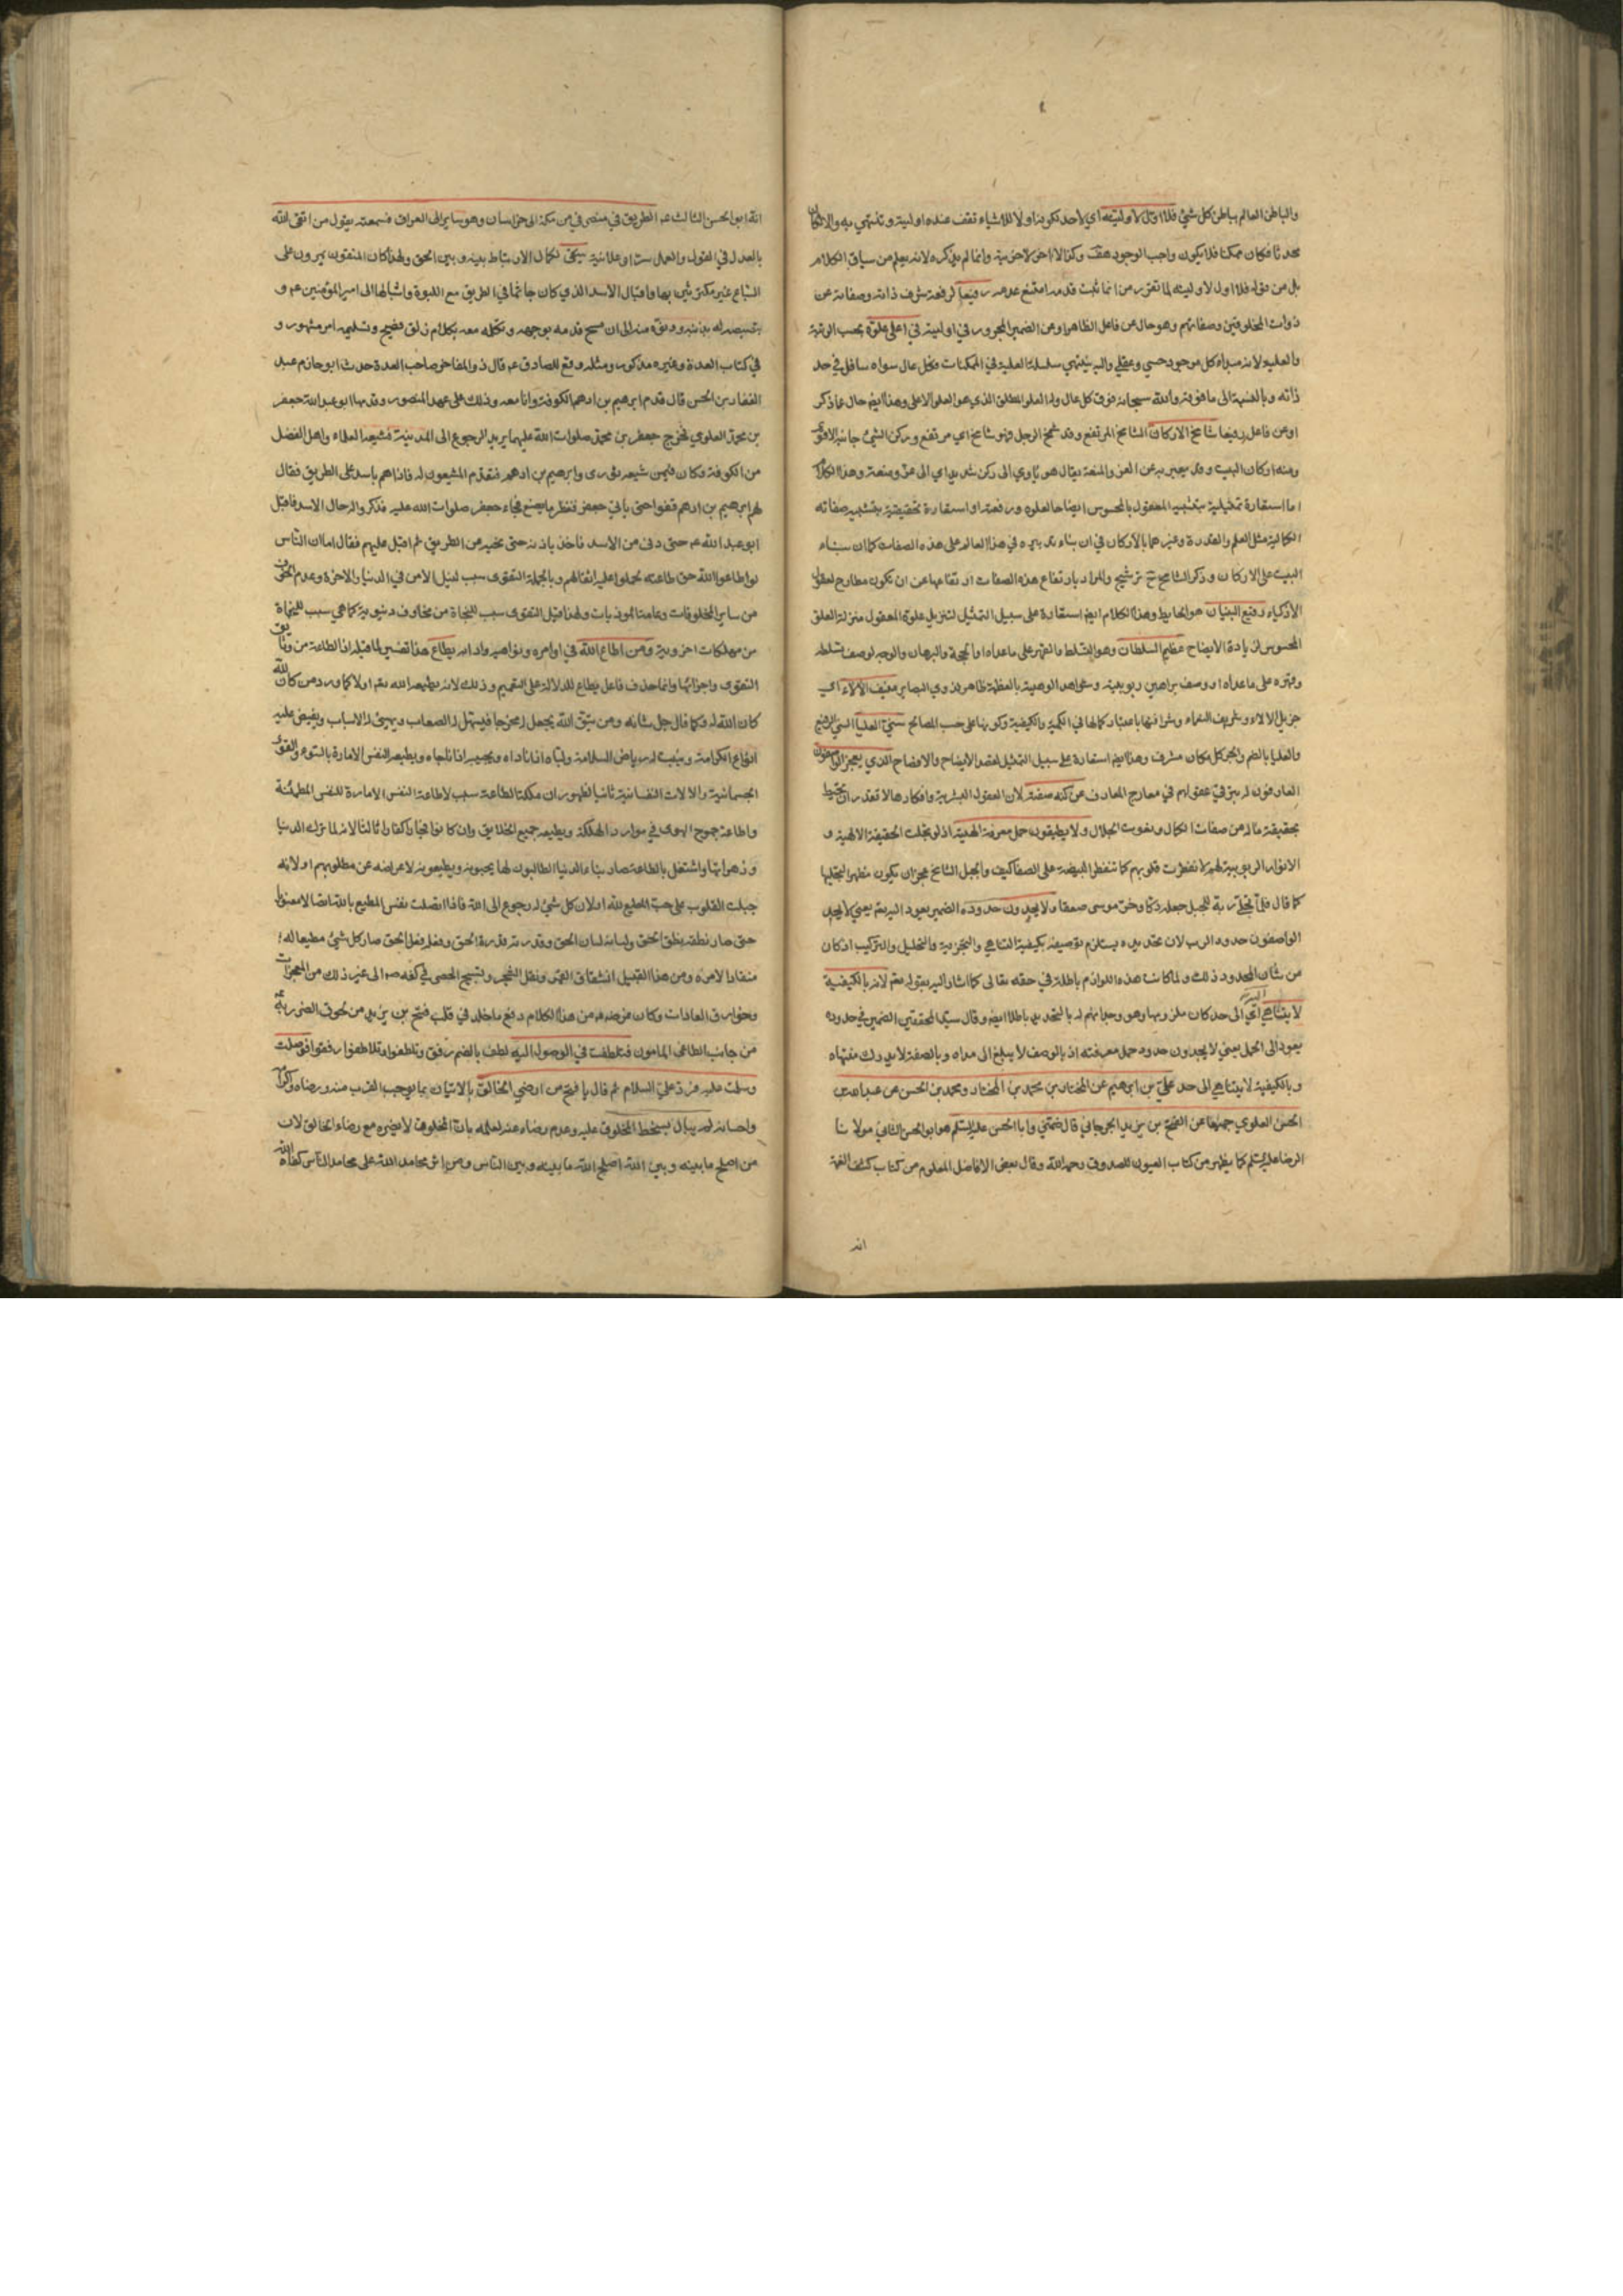 والباطن العالم بباطن كل شيء فلا اول لاوليته اي لاحد تكون بداولا للاشياء تقف عنده اولية وتنتهي به والا لكان
محدثا فكان ممكنا فلا يكون واجب الوجود هف وكذا لا اخر لاخريته وانما لم يذكره لانه يعلم من سياق الكلام
بل من قوله فلا اول لاوليته لما تقرر من ان ما ثبت قدمه امتنع عدمه رفيعا لرفعة شرف ذاته وصفاته عن
ذوات المخلوقين وصفاتهم وهو حال عن فاعل الظاهر او عن الضمير المجرور في اوليته في اعلى علوه بحسب الرتبة
والعلية لانه مبداء كل موجود حسي وعقلي واليه ينتهي سلسلة العلية في الممكنات فكل عال سواه سافل في حد
ذاته وبالنسبة الى ما فوقه والله سبحانه فوق كل عال وله العلو المطلق الذي هو العلو الاعلى وهذا ايضا حال عما ذكر
او عن فاعل رفيعا شامخ الاركان الشامخ المرتفع وقد شمخ الرجل فهو شامخ اي مرتفع وركن الشيء جانبه الاقوى
ومنه اركان البيت وقد يعبر به عن العز والمنعة يقال هو ياوي الى ركن شديد اي الى عز ومنعة وهذا الكلام
اما استعارة تمثيلية بتشبيه المعقول بالمحسوس ايضاحا لعلوه ورفعته او استعارة تحقيقية بتشبيه صفاته
الكمالية مثل العلم والقدرة وغيرهما بالاركان في ان بناء تدبيره في هذا العالم على هذه الصفات كما ان بناء
البيت على الاركان وذكر الشامخ ح ترشيح والمراد بارتفاع هذه الصفات ارتفاعها عن ان تكون مطارح لعقول
الاذكياء رفيع البنيان هو الحايط وهذا الكلام ايضا استعارة على سبيل التمثيل لتنزيل علوه المعقول منزلة العلو
المحسوس لزيادة الايضاح عظيم السلطان وهو التسلط والقهر على ما عداه او الحجة والبرهان والوجه لوصف تسلطه
وقهره على ما عداه او وصف براهين ربوبيته وشواهد الوهيته بالعظمة ظاهر لذوي البصاير منيف الالاء اي
جزيل الالاء وشريف النعماء وشرافتها باعتبار كمالها في الكمية والكيفية وكونها على حسب المصالح سني العليا السني الرفيع
والعليا بالضم والجر كل مكان مشرف وهذا ايضا استعارة على سبيل التمثيل لقصد الايضاح والافصاح الذي يعجز الواصفون
العارفون لم يترقى عقولهم في معارج المعارف عن كنه صفته لان العقول البشرية وافكارها لا تقدر ان تحيط
بحقيقة ماله من صفات الكمال ونعوت الجلال ولا يطيقون حمل معرفة الهيته اذ لو تجلت الحقيقة الالهية و
الانوار الربوبية لهم لانفطرت قلوبهم كما تنفطر البيضة على الصفا كيف والجبل الشامخ عجز ان يكون مظهرا لتجليها
كما قال فلما تجلى ربه للجبل جعله دكا وخر موسى صعقا ولا يجدون حدوده الضمير يعود اليه تعم يعني لا يجد
الواصفون حدود الرب لان تحديده يستلزم توصيفه بكيفية التناهي والتجزية والتحليل والتركيب اذ كان
من شان المحدود ذلك ولما كانت هذه اللوازم باطلة في حقه تعالى كما اشار اليه بقوله تعم لانه بالكيفية
لا يتناهى اليه اي الى حد كان ملزومها وهو وجدانهم له بالتحديد باطلا ايضا وقال سيد المحققين الضمير في حدوده
يعود الى الحمل يعني لا يجدون حدود حمل معرفته اذ بالوصف لا يبلغ الى مداه وبالصفة لا يدرك منتهاه
وبالكيفية لا يتناهى الى حد علي بن ابرهيم عن المختار بن محمد بن المختار ومحمد بن الحسن عن عبد الله بن
الحسن العلوي جميعا عن الفتح بن يزيد الجرجاني قال ضمني وابا الحسن عليه السلم هو ابو الحسن الثاني مولانا
الرضا عليه السلم كما يظهر من كتاب العيون للصدوق رحمه الله وقال بعض الافاضل المعلوم من كتاب كشف الغمة
انه
انه ابو الحسن الثالث عم الطريق في منصرفي من مكة الى خراسان وهو ساير الى العراق فسمعته يقول من اتقى الله
بالعدل في القول والعمل سرا وعلانية يتقى لكمال الارتباط بينه وبين الحق ولهذا كان المتقون يمرون على
السباع غير مكترثين بها واقبال الاسد الذي كان جاثما في الطريق مع اللبوة واشبالها الى امير المؤمنين عم و
بصبصه له بذنبه ودنوه منه الى ان مسح قدمه بوجهه وتكلمه معه بكلام ذلق فصيح وتسليمه امر مشهور و
في كتاب العدة وغيره مذكور ومثله وقع للصادق عم قال ذو المفاخر صاحب العدة حدث ابو حازم عبد
الغفار بن الحسن قال قدم ابرهيم بن ادهم الكوفة وانا معه وذلك على عهد المنصور وقدمها ابو عبد الله جعفر
بن محمد العلوي فخرج جعفر بن محمد صلوات الله عليهما يريد الرجوع الى المدينة فشيعه العلماء واهل الفضل
من الكوفة وكان فيمن شيعه ثوري وابرهيم بن ادهم فتقدم المشيعون له فاذا هم باسد على الطريق فقال
لهم ابرهيم بن ادهم قفوا حتى ياتي جعفر فننظر ما يصنع فجاء جعفر صلوات الله عليه فذكروا له حال الاسد فاقبل
ابو عبد الله عم حتى دنى من الاسد فاخذ باذنه حتى نحيه عن الطريق ثم اقبل عليهم فقال اما ان الناس
لو اطاعوا الله حق طاعته لحملوا عليه اثقالهم وبالجملة التقوى سبب لنيل الامن في الدنيا والاخرة وعدم الخوف
من ساير المخلوقات وعامة الموذيات ولهذا قيل التقوى سبب للنجاة من مخاوف دنيوية كما هي سبب للنجاة
من مهلكات اخروية ومن اطاع الله في اوامره ونواهيه وادابه يطاع هذا تفسير لما قبله اذ الطاعة من وثايق
التقوى واجزائها وانما حذف فاعل يطاع للدلالة على التعميم وذلك لانه يطيعه الله تعم اولا كما ورد من كان لله
كان الله له وكما قال جل شانه ومن يتق الله يجعل له مخرجا فيسهل له الصعاب ويهيئ له الاسباب ويفيض عليه
انواع الكرامة وينبت له رياض السلامة ولباه اذا ناداه ويجيبه اذا ناجاه ويطيعه النفس الامارة بالسوء والقوى
الجسمانية والالات النفسانية ثانيا لظهور ان ملكة الطاعة سبب لاطاعة النفس الامارة للنفس المطمئنة
واطاعة جموح الهوى في موارد الهلكة ويطيعه جميع الخلايق وان كانوا فجارا كفارا ثالثا لانه لما ترك الدنيا
وزهراتها واشتغل بالطاعة صار بناء الدنيا الطالبون لها يحبونه ويطيعونه لاعراضه عن مطلوبهم او لانه
جبلت القلوب على حب المطيع لله او لان كل شيء له رجوع الى الله فاذا اتصلت نفس المطيع بالله اتصالا معنويا
حتى صار نطقه بنطق الحق ولسانه لسان الحق وقدرته قدرة الحق وفعله فعل الحق صار كل شيء مطيعا له
منقادا لامره ومن هذا القبيل انشقاق القمر ونقل الشجر وتسبيح الحصى في كفه صم الى غير ذلك من المعجزات
وخوارق العادات وكان غرضه عم من هذا الكلام دفع ما خلد في قلب فتح بن يزيد من خوف الضرر به عم
من جانب الطاغي المامون فتلطفت في الوصول اليه لطف بالضم رفق وتلطفوا وتلاطفوا رفقوا فوصلت
وسلمت عليه فرد علي السلام ثم قال يا فتح من ارضى الخالق بالاتيان بما يوجب القرب منه ورضاه واكرامه
واحسانه لم يبال بسخط المخلوق عليه وعدم رضاه عنه لعلمه بان المخلوق لا يضره مع رضاء الخالق لان
من اصلح ما بينه وبين الله اصلح الله ما بينه وبين الناس ومن اثر محامد الله على محامد الناس كفاه الله